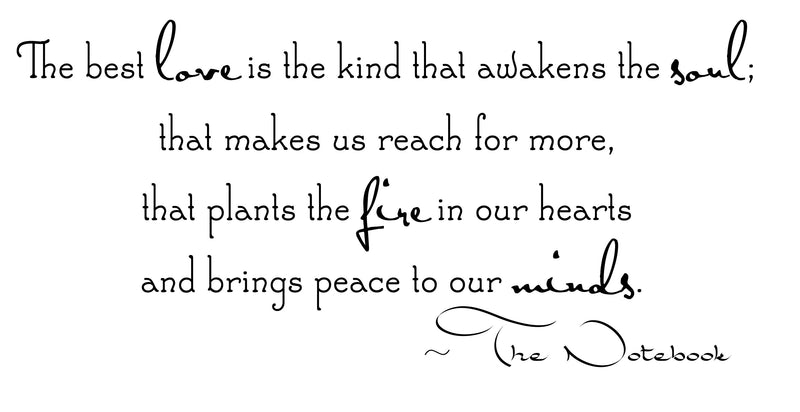 The best love is the kind that awakens the soul;
that makes us reach for more,
that plants the fire in our hearts
and brings peace to our minds.
~ The Notebook